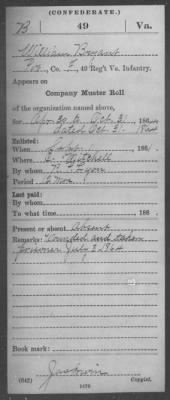 (CONFEDERATE.)
B | 49 | Va.
William Bryant
Co. , 49 Reg't Va. Infantry.
Appears on
Company Muster Roll
of the organization named above,
for Apr 30 to Oct 31, 1864.
dated Oct 31, 1864
Enlisted:
When 186 .
Where Mitchell
By whom
Period
Last paid:
By whom
To what time , 186 .
Present or absent Absent
Remarks: Wounded and taken
prisoner July 3, 1864
Book mark:
(642) Copyist.